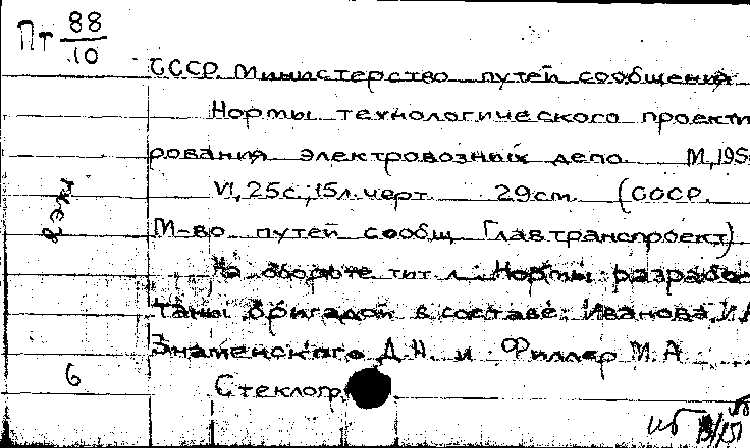 Пт 88
10
СССР. Министерство путей сообщения
Нормы технологического проекти
рования электровозных депо М, 195
VI, 25с.; 15л. черт. 29cm (СССР.
М-во путей сообщ Главтранспроект)
2 экз
На обороте тит л: Нормы разрабо
таны бригадой в составе: Иванова, И.
Знаменского Д.Н. и Филлер М.А
6
Стеклогр.